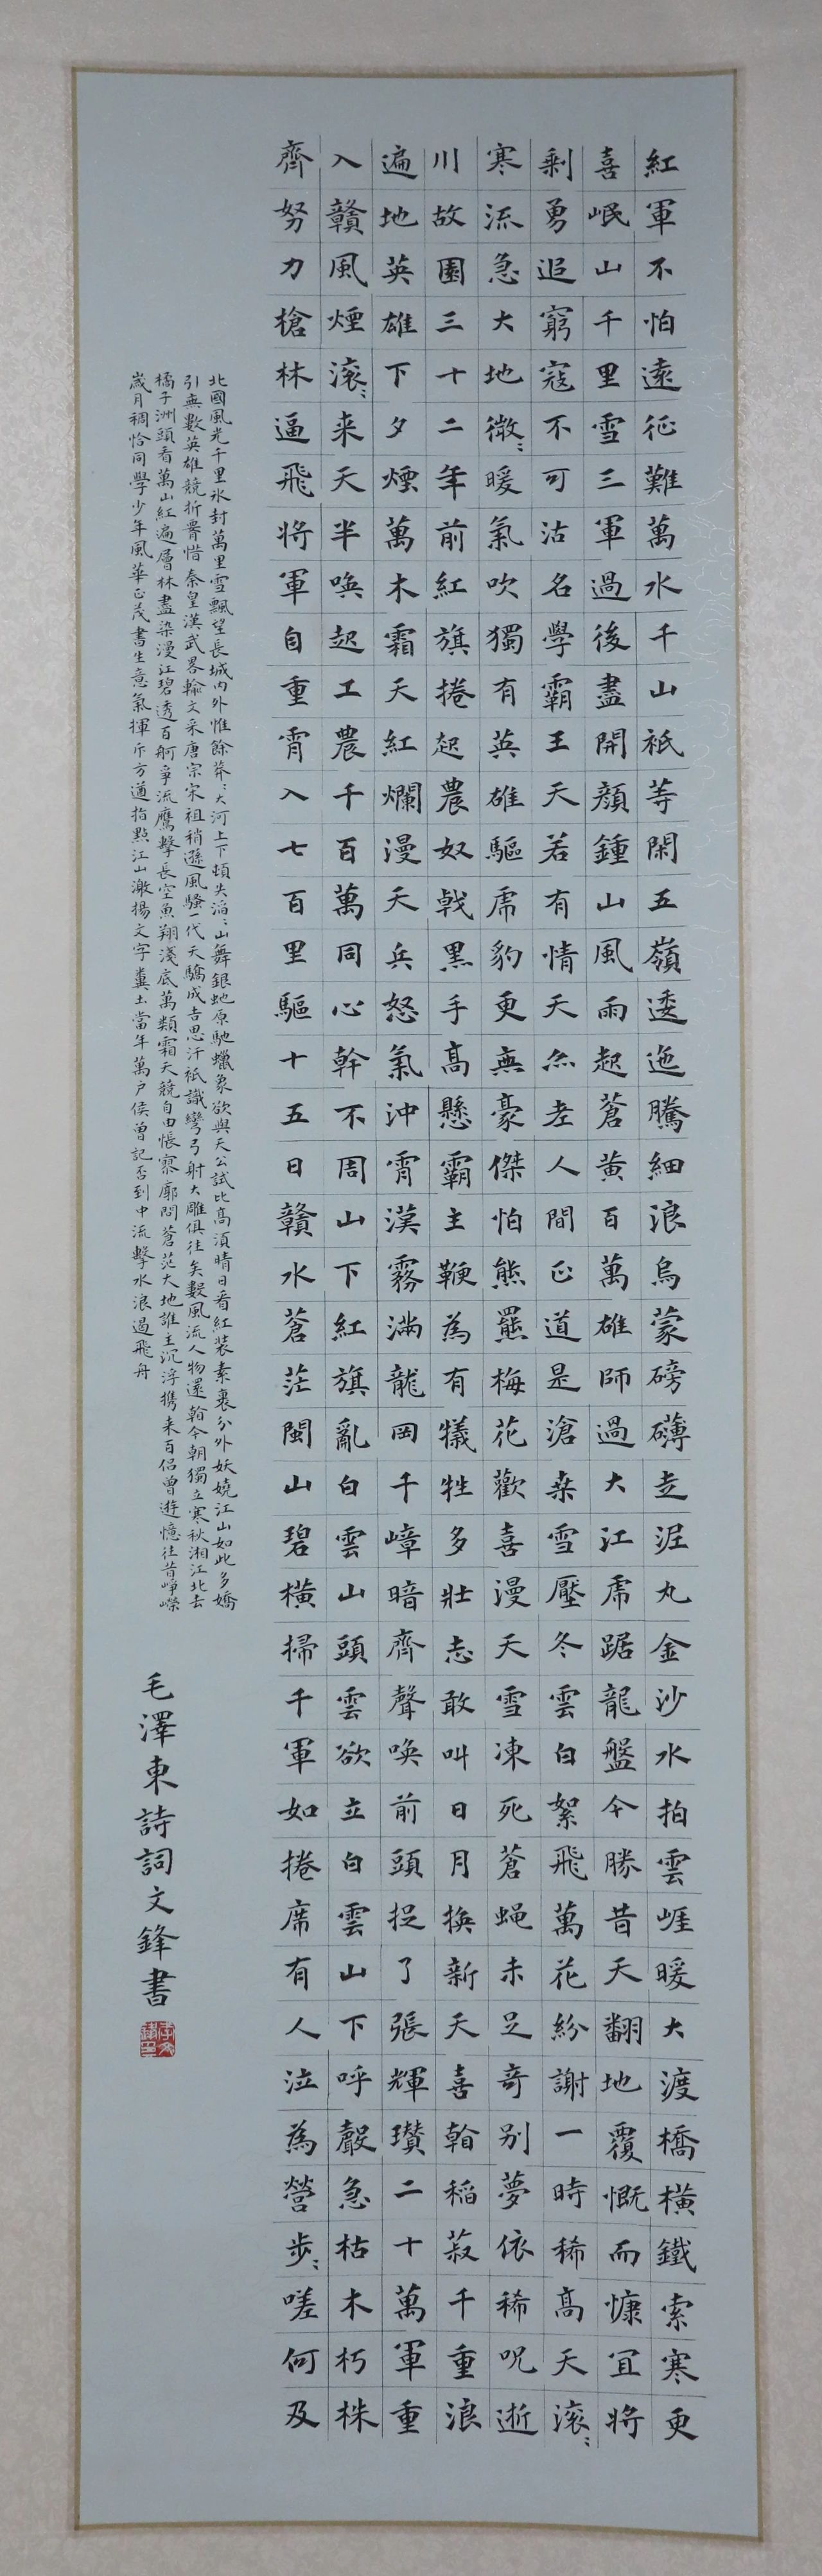 紅軍不怕遠征難萬水千山祇等閑五嶺逶迤騰細浪烏蒙磅礴走泥丸金沙水拍雲崖暖大渡橋橫鐵索寒更
喜岷山千里雪三軍過後盡開顏鍾山風雨起蒼黃百萬雄師過大江虎踞龍盤今勝昔天翻地覆慨而慷宜將
剩勇追窮寇不可沽名學霸王天若有情天亦老人間正道是滄桑雪壓冬雲白絮飛萬花紛謝一時稀高天滾〻
寒流急大地微〻暖氣吹獨有英雄驅虎豹更無豪傑怕熊羆梅花歡喜漫天雪凍死蒼蠅未足奇别夢依稀咒逝
川故園三十二年前紅旗捲起農奴戟黑手高懸霸主鞭為有犧牲多壯志敢叫日月換新天喜看稻菽千重浪
遍地英雄下夕煙萬木霜天紅爛漫天兵怒氣沖霄漢霧滿龍岡千嶂暗齊聲喚前頭捉了張輝瓚二十萬軍重
入贛風煙滾〻来天半喚起工農千百萬同心幹不周山下紅旗亂白雲山頭雲欲立白雲山下呼聲急枯木朽株
齊努力槍林逼飛將軍自重霄入七百里驅十五日贛水蒼茫閩山碧橫掃千軍如捲席有人泣為營步〻嗟何及
北國風光千里氷封萬里雪飄望長城内外惟餘莽〻大河上下頓失滔〻山舞銀蛇原馳蠟象欲與天公試比高須晴日看紅裝素裹分外妖嬈江山如此多嬌
引無數英雄競折腰惜秦皇漢武畧輸文采唐宗宋祖稍遜風騷一代天驕成吉思汗祇識彎弓射大雕俱往矣數風流人物還看今朝獨立寒秋湘江北去
橘子洲頭看萬山紅遍層林盡染漫江碧透百舸爭流鷹擊長空魚翔淺底萬類霜天競自由悵寥廓問蒼茫大地誰主沉浮携来百侣曾遊憶往昔崢嶸
歲月稠恰同學少年風華正茂書生意氣揮斥方遒指點江山激揚文字糞土當年萬户侯曾記否到中流擊水浪遏飛舟
毛澤東詩詞文鋒書